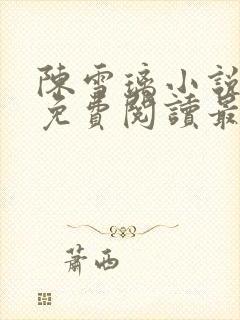 陳雪璃小說
免費閱讀最
蕭西